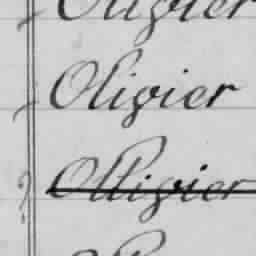 Olivier
Olivier
Olligier